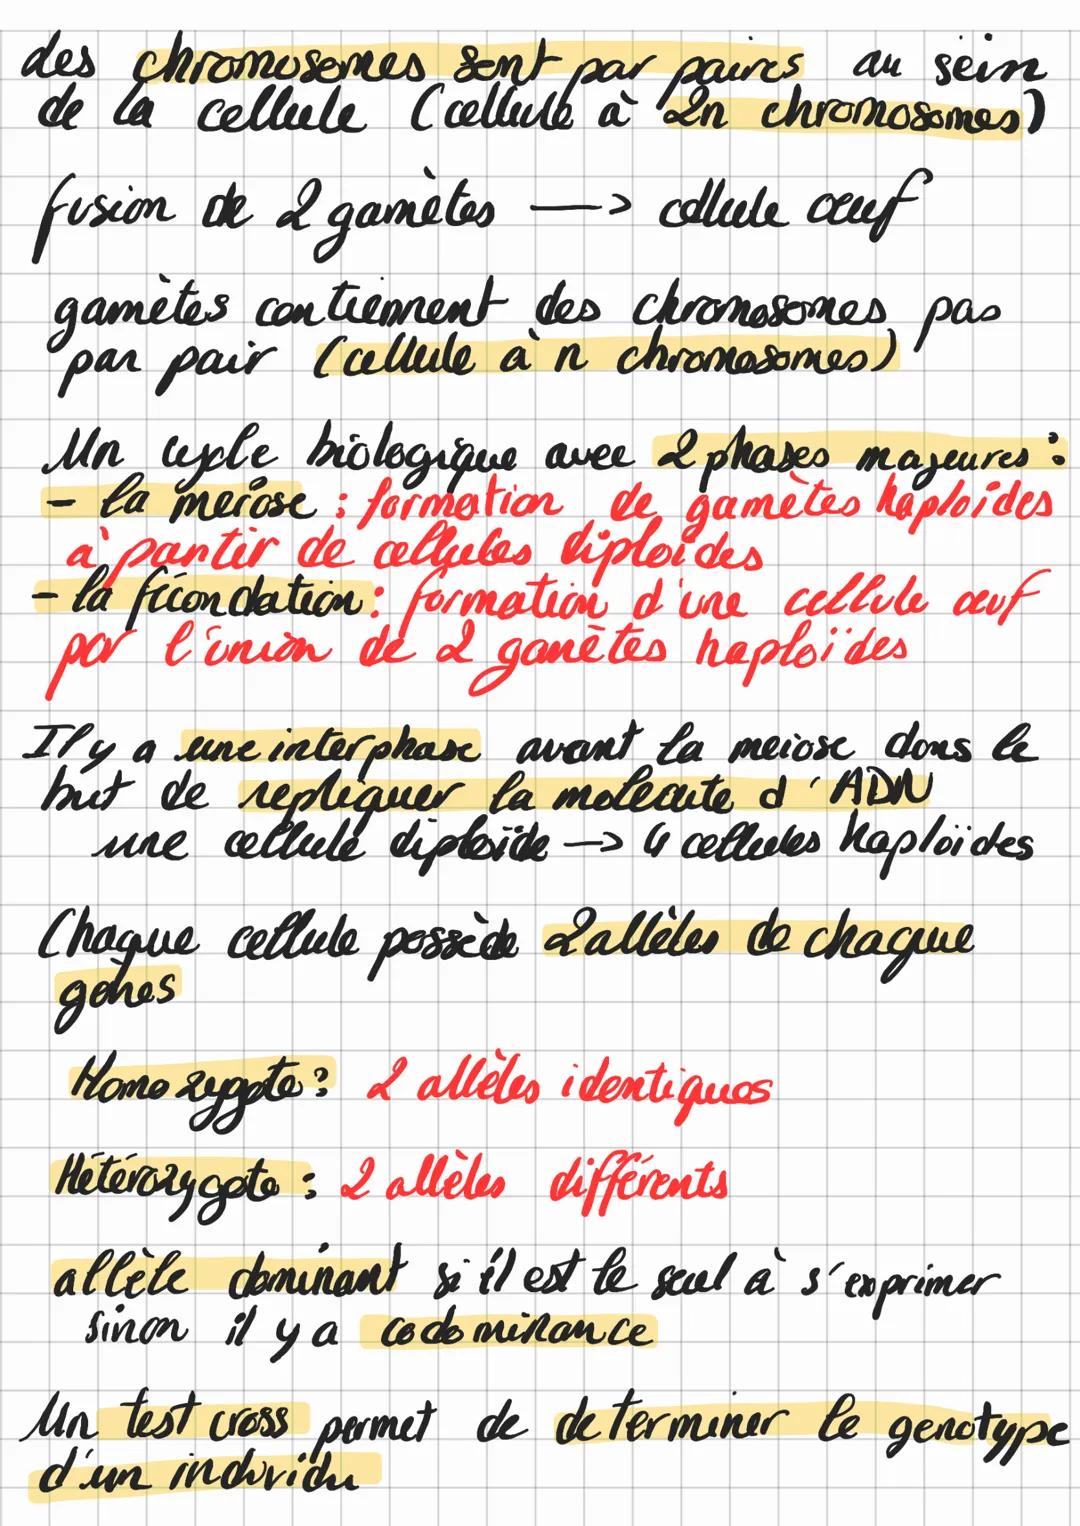 des chromosomes sont par paires au sein
de la cellule (cellule à 2n chromosomes)
fusion de 2 gamètes —> cellule œuf
gamètes contiennent des chromosomes pas
par pair (cellule à n chromosomes)
Un cycle biologique avec 2 phases majeures :
- la meïose : formation de gamètes haploïdes
à partir de cellules diploïdes
- la fécondation : formation d'une cellule œuf
par l'union de 2 gamètes haploïdes
Il y a une interphase avant la meiose dans le
but de repliquer la molécule d'ADN
une cellule diploïde —> 4 cellules haploïdes
Chaque cellule possède 2 allèles de chaque
gènes
Homozygote : 2 allèles identiques
Hétérozygote : 2 allèles différents
allèle dominant si il est le seul à s'exprimer
sinon il y a codominance
Un test cross permet de determiner le genotype
d'un individu